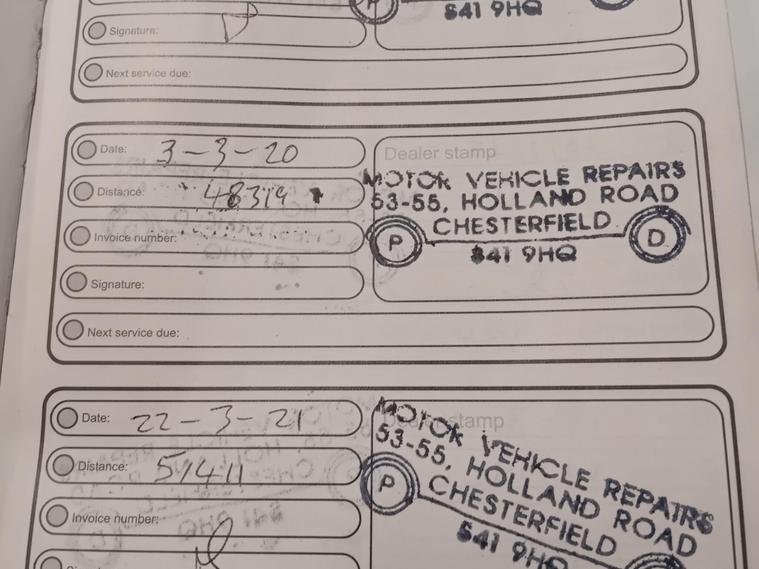 S41 9HQ
Signature:
P
Next service due:
Date: 3-3-20
Dealer stamp
Distance: 48319
Invoice number:
Signature:
MOTOR VEHICLE REPAIRS
53-55, HOLLAND ROAD
CHESTERFIELD
P D
S41 9HQ
Next service due:
Date: 22-3-21
Dealer stamp
Distance: 51411
Invoice number:
MOTOR VEHICLE REPAIRS
53-55, HOLLAND ROAD
P CHESTERFIELD
S41 9HQ